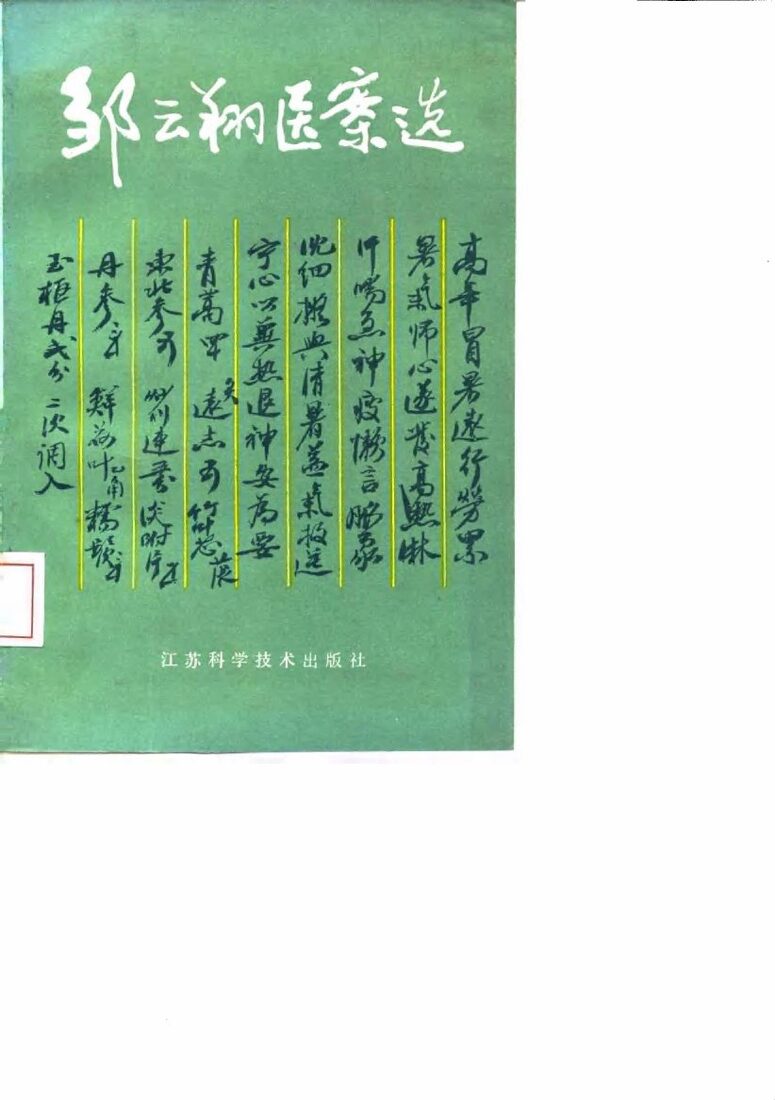 邹云翔医案选
高年冒暑远行劳累
暑气师心遂发高热淋
汗喘急神疲懒言脉象
沈细拟与清暑益气扶过
宁心以冀热退神安为要
青蒿 远志 竹叶芯
东北参 川连 淡附片
丹参 鲜荷叶一角 糯
玉枢丹弍分 二次调入
江苏科学技术出版社